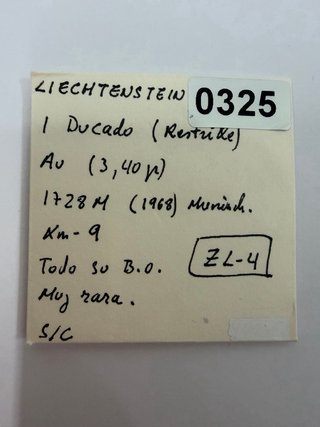 LIECHTENSTEIN
0325
1 Ducado (Restrike)
Au (3,40 gr)
1728 M (1968) Munich.
Km-9
Todo su B.O.
ZL-4
Muy rara.
S/C